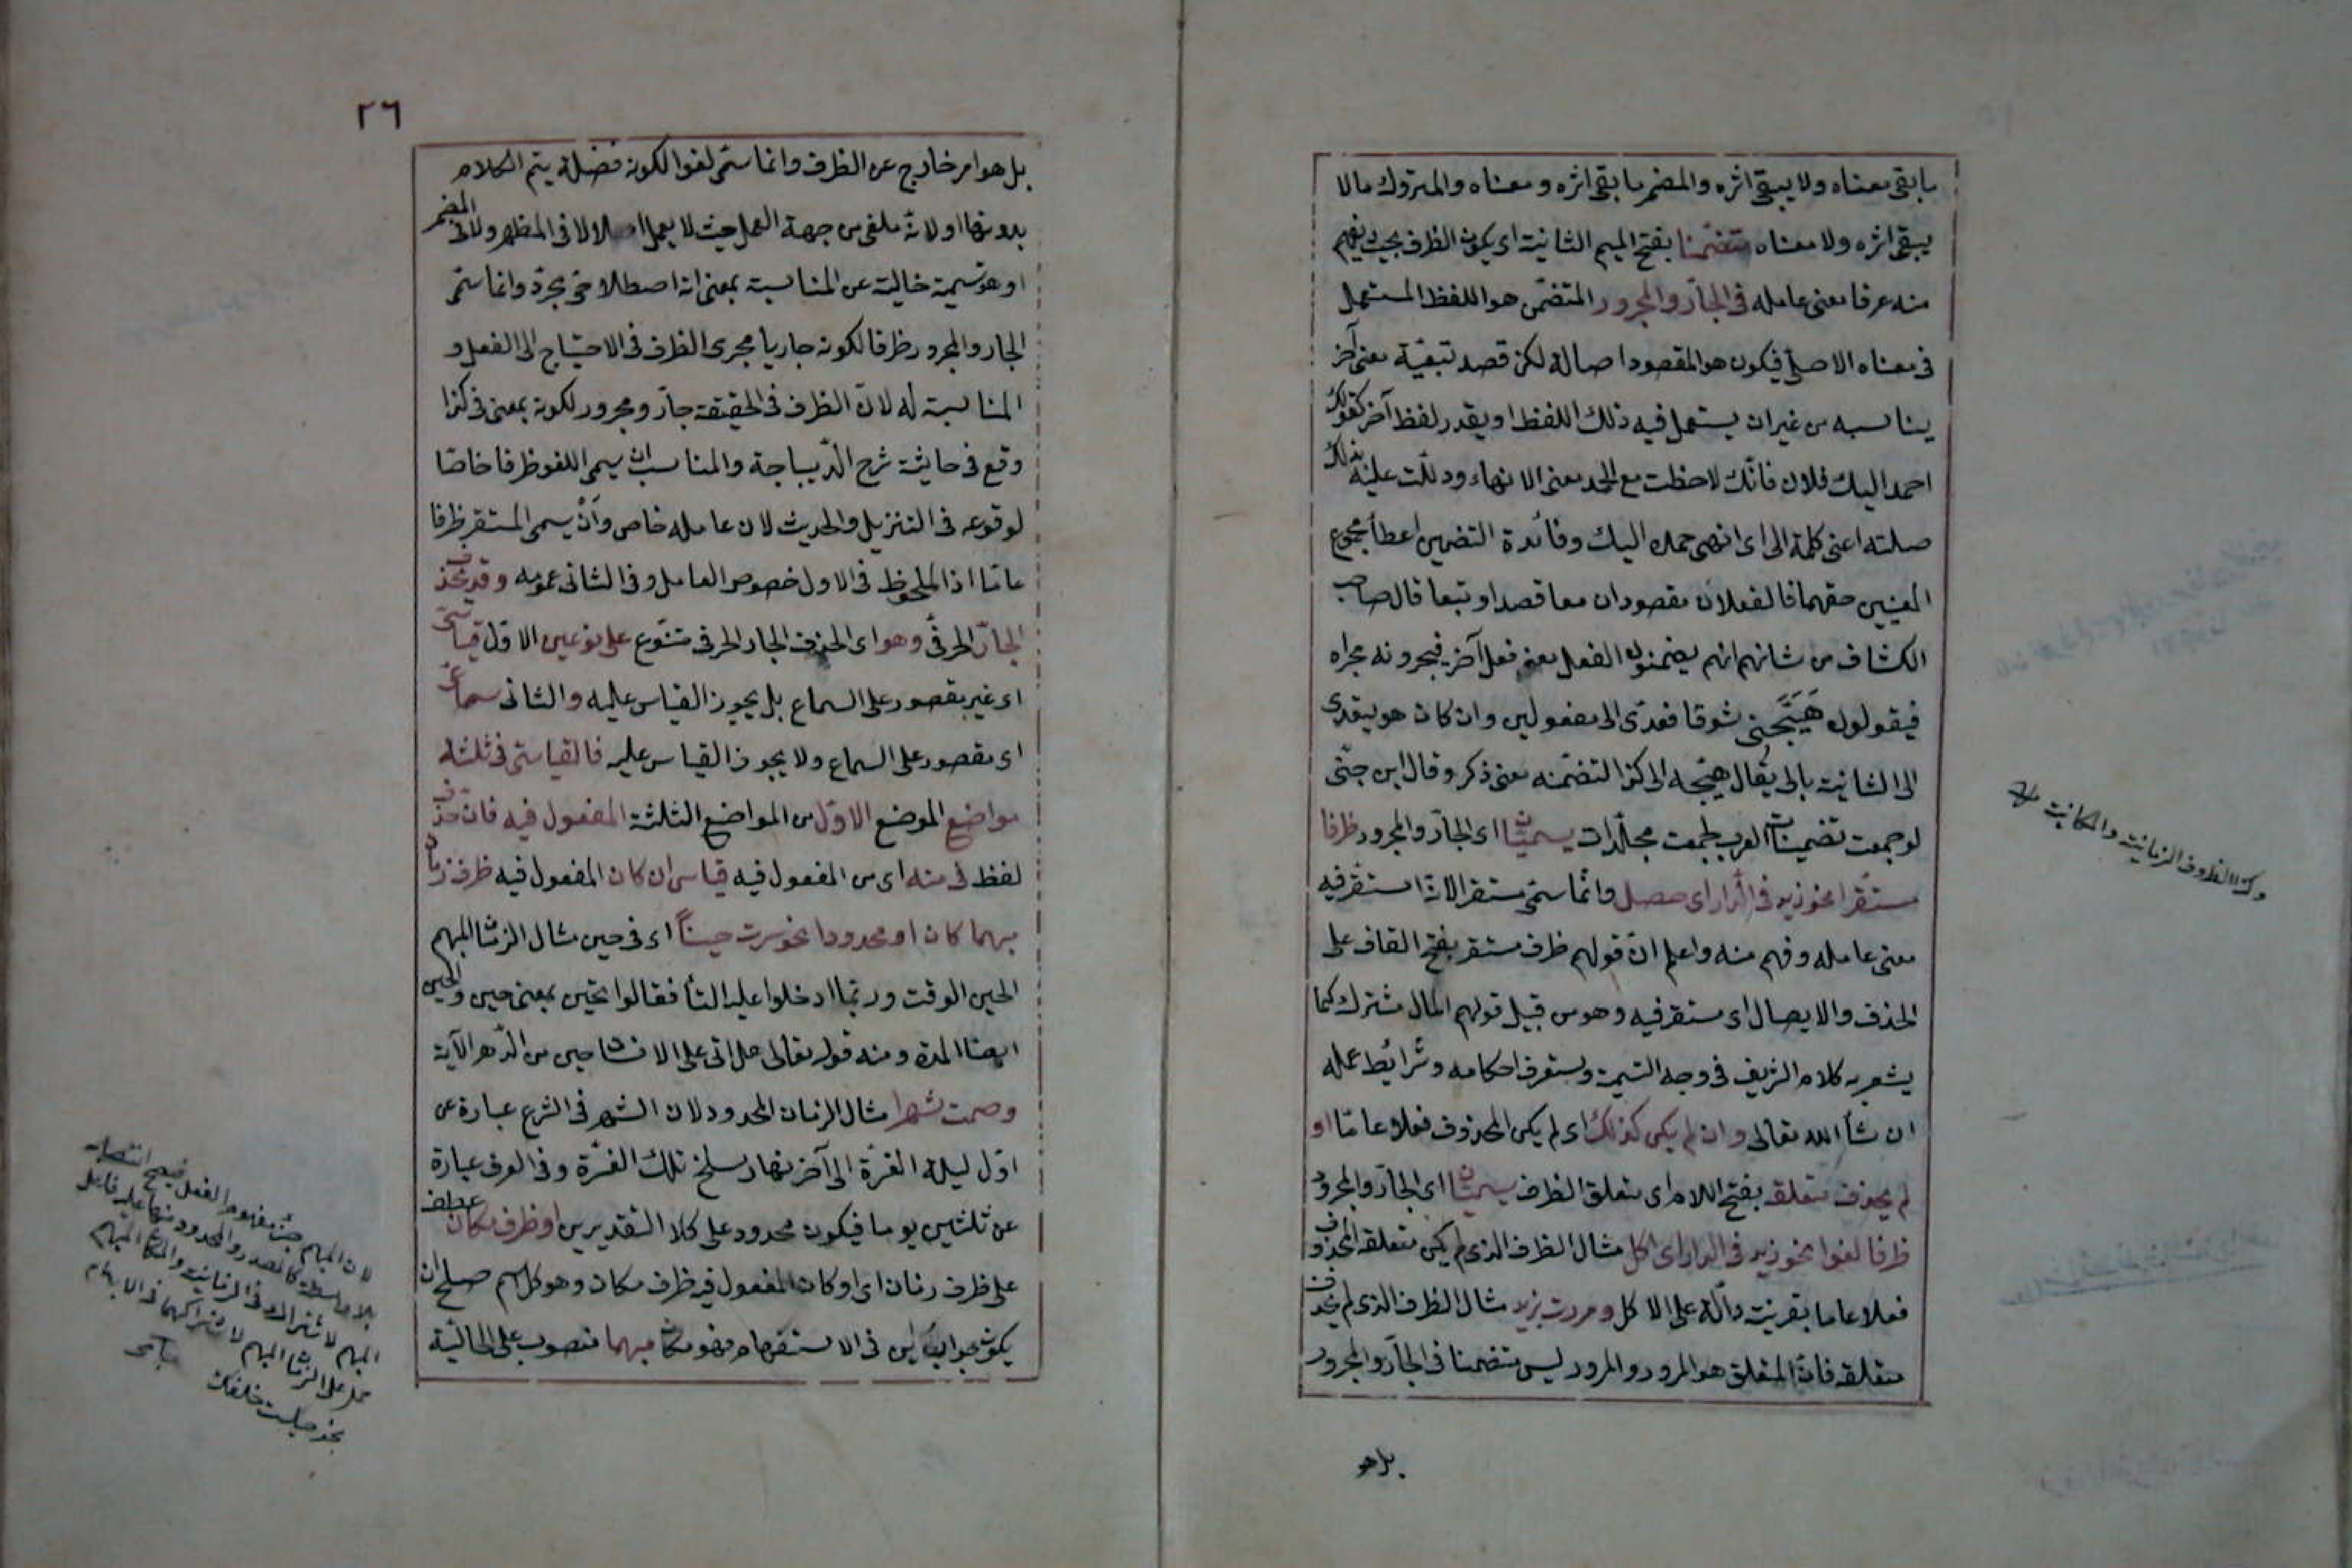 ما بقى معناه ولا يبقى اثره والمضمر ما بقى اثره ومعناه والمتروك ما لا
يبقى اثره ولا معناه متضمنا بفتح الميم الثانية اى يكون الظرف بحيث يفهم
منه عرفا معنى عامله فى الجار والمجرور المتضمن هو اللفظ المستعمل
فى معناه الاصلى فيكون هو المقصود اصالة لكن قصد تبعية معنى آخر
يناسبه من غير ان يستعمل فيه ذلك اللفظ او يقدر لفظ آخر كقولك
احمد اليك فلان فانك لاحظت مع الحمد معنى الانهاء ودللت عليه بذلك
صلته اعنى كلمة الى اى انهى حمده اليك وفائدة التضمين اعطأ مجموع
المعنيين حقهما فالفعلان مقصودان معا قصدا وتبعا قال صاحب
الكشاف من شانهم انهم يضمنون الفعل معنى فعل آخر فيجرونه مجراه
فيقولون هَيَّجَنى شوقا فعدى الى مفعولين وان كان هو يتعدى
الى الثانية بالى يقال هيجه الى كذا لتضمنه معنى ذكر وقال ابن جنى
لو جمعت تضمينات العرب لجمعت مجلدات يسميان اى الجار والمجرور ظرفا
مستقرا نحو زيد فى الدار اى حصل وانما سمى مستقرا لانه استقر فيه
معنى عامله وفهم منه واعلم ان قولهم ظرف مستقر بفتح القاف على
الحذف والايصال اى مستقر فيه وهو من قبيل قولهم المال مشترك كما
يشعر به كلام الشريف فى وجه التسمية وستعرف احكامه وشرائط عمله
ان شأ الله تعالى وان لم يكن كذلك اى لم يكن المحذوف فعلا عاما او
لم يحذف متعلقه بفتح اللام اى متعلق الظرف يسميان اى الجار والمجرور
ظرفا لغوا نحو زيد فى الدار اى اكل مثال الظرف الذى لم يكن متعلقه المحذوف
فعلا عاما بقرينة دالة على الاكل ومررت بزيد مثال الظرف الذى لم يحذف
متعلقه فان المتعلق هو المرور والمرور ليس متضمنا فى الجار والمجرور
بل هو
وكذا الظروف الزمانية والمكانية
٢٦
بل هو امر خارج عن الظرف وانما سمى لغوا لكونه فضلة يتم الكلام
بدونها او لانه ملغى من جهة العمل حيث لا يعمل اصلا لا فى المظهر ولا فى المضمر
او هو تسمية خالية عن المناسبة بمعنى انه اصطلاحى مجرد وانما سمى
الجار والمجرور ظرفا لكونه جاريا مجرى الظرف فى الاحتياج الى الفعل و
المناسبة له لان الظرف فى الحقيقة جار ومجرور لكونه بمعنى فى كذا
وقع فى حاشية شرح الديباجة والمناسب ان يسمى اللغو ظرفا خاصا
لوقوعه فى التنزيل والحديث لان عامله خاص وان يسمى المستقر ظرفا
عاما اذ الملحوظ فى الاول خصوص العامل وفى الثانى عمومه وقد يحذف
الجار الحرفى وهو اى الحذف الجار الحرفى متنوع على نوعين الاول قياسى
اى غير مقصور على السماع بل يجوز القياس عليه والثانى سماعى
اى مقصور على السماع ولا يجوز القياس عليه فالقياسى فى ثلثة
مواضع الموضع الاول من المواضع الثلثة المفعول فيه فان حذف
لفظ فى منه اى من المفعول فيه قياس ان كان المفعول فيه ظرف زمان
مبهما كان او محدودا نحو سرت حيناً اى فى حين مثال الزمان المبهم
الحين الوقت وربما ادخلوا عليه التأ فقالوا تحين بمعنى حين والحين
ايضا المدة ومنه قوله تعالى هل اتى على الانسان حين من الدهر الآية
وصمت شهرا مثال الزمان المحدود لان الشهر فى الشرع عبارة عن
اول ليلة الغرة الى آخر نهار سلخ تلك الغرة وفى العرف عبارة
عن ثلثين يوما فيكون محدود على كلا التقديرين او ظرف مكان عطف
على ظرف زمان اى او كان المفعول فيه ظرف مكان وهو كل اسم صلح ان
يكون جواب اين فى الاستفهام فهو مكان مبهما منصوب على الحالية
لان المبهم جزء مفهوم الفعل فيصح انتصابه
بلا واسطة كالمصدر والمحدود منها
المبهم لاشتراكه فى الزمانية والمكان المبهم
حمل على الزمان المبهم لاشتراكهما فى الابهام
نحو جلست خلفك